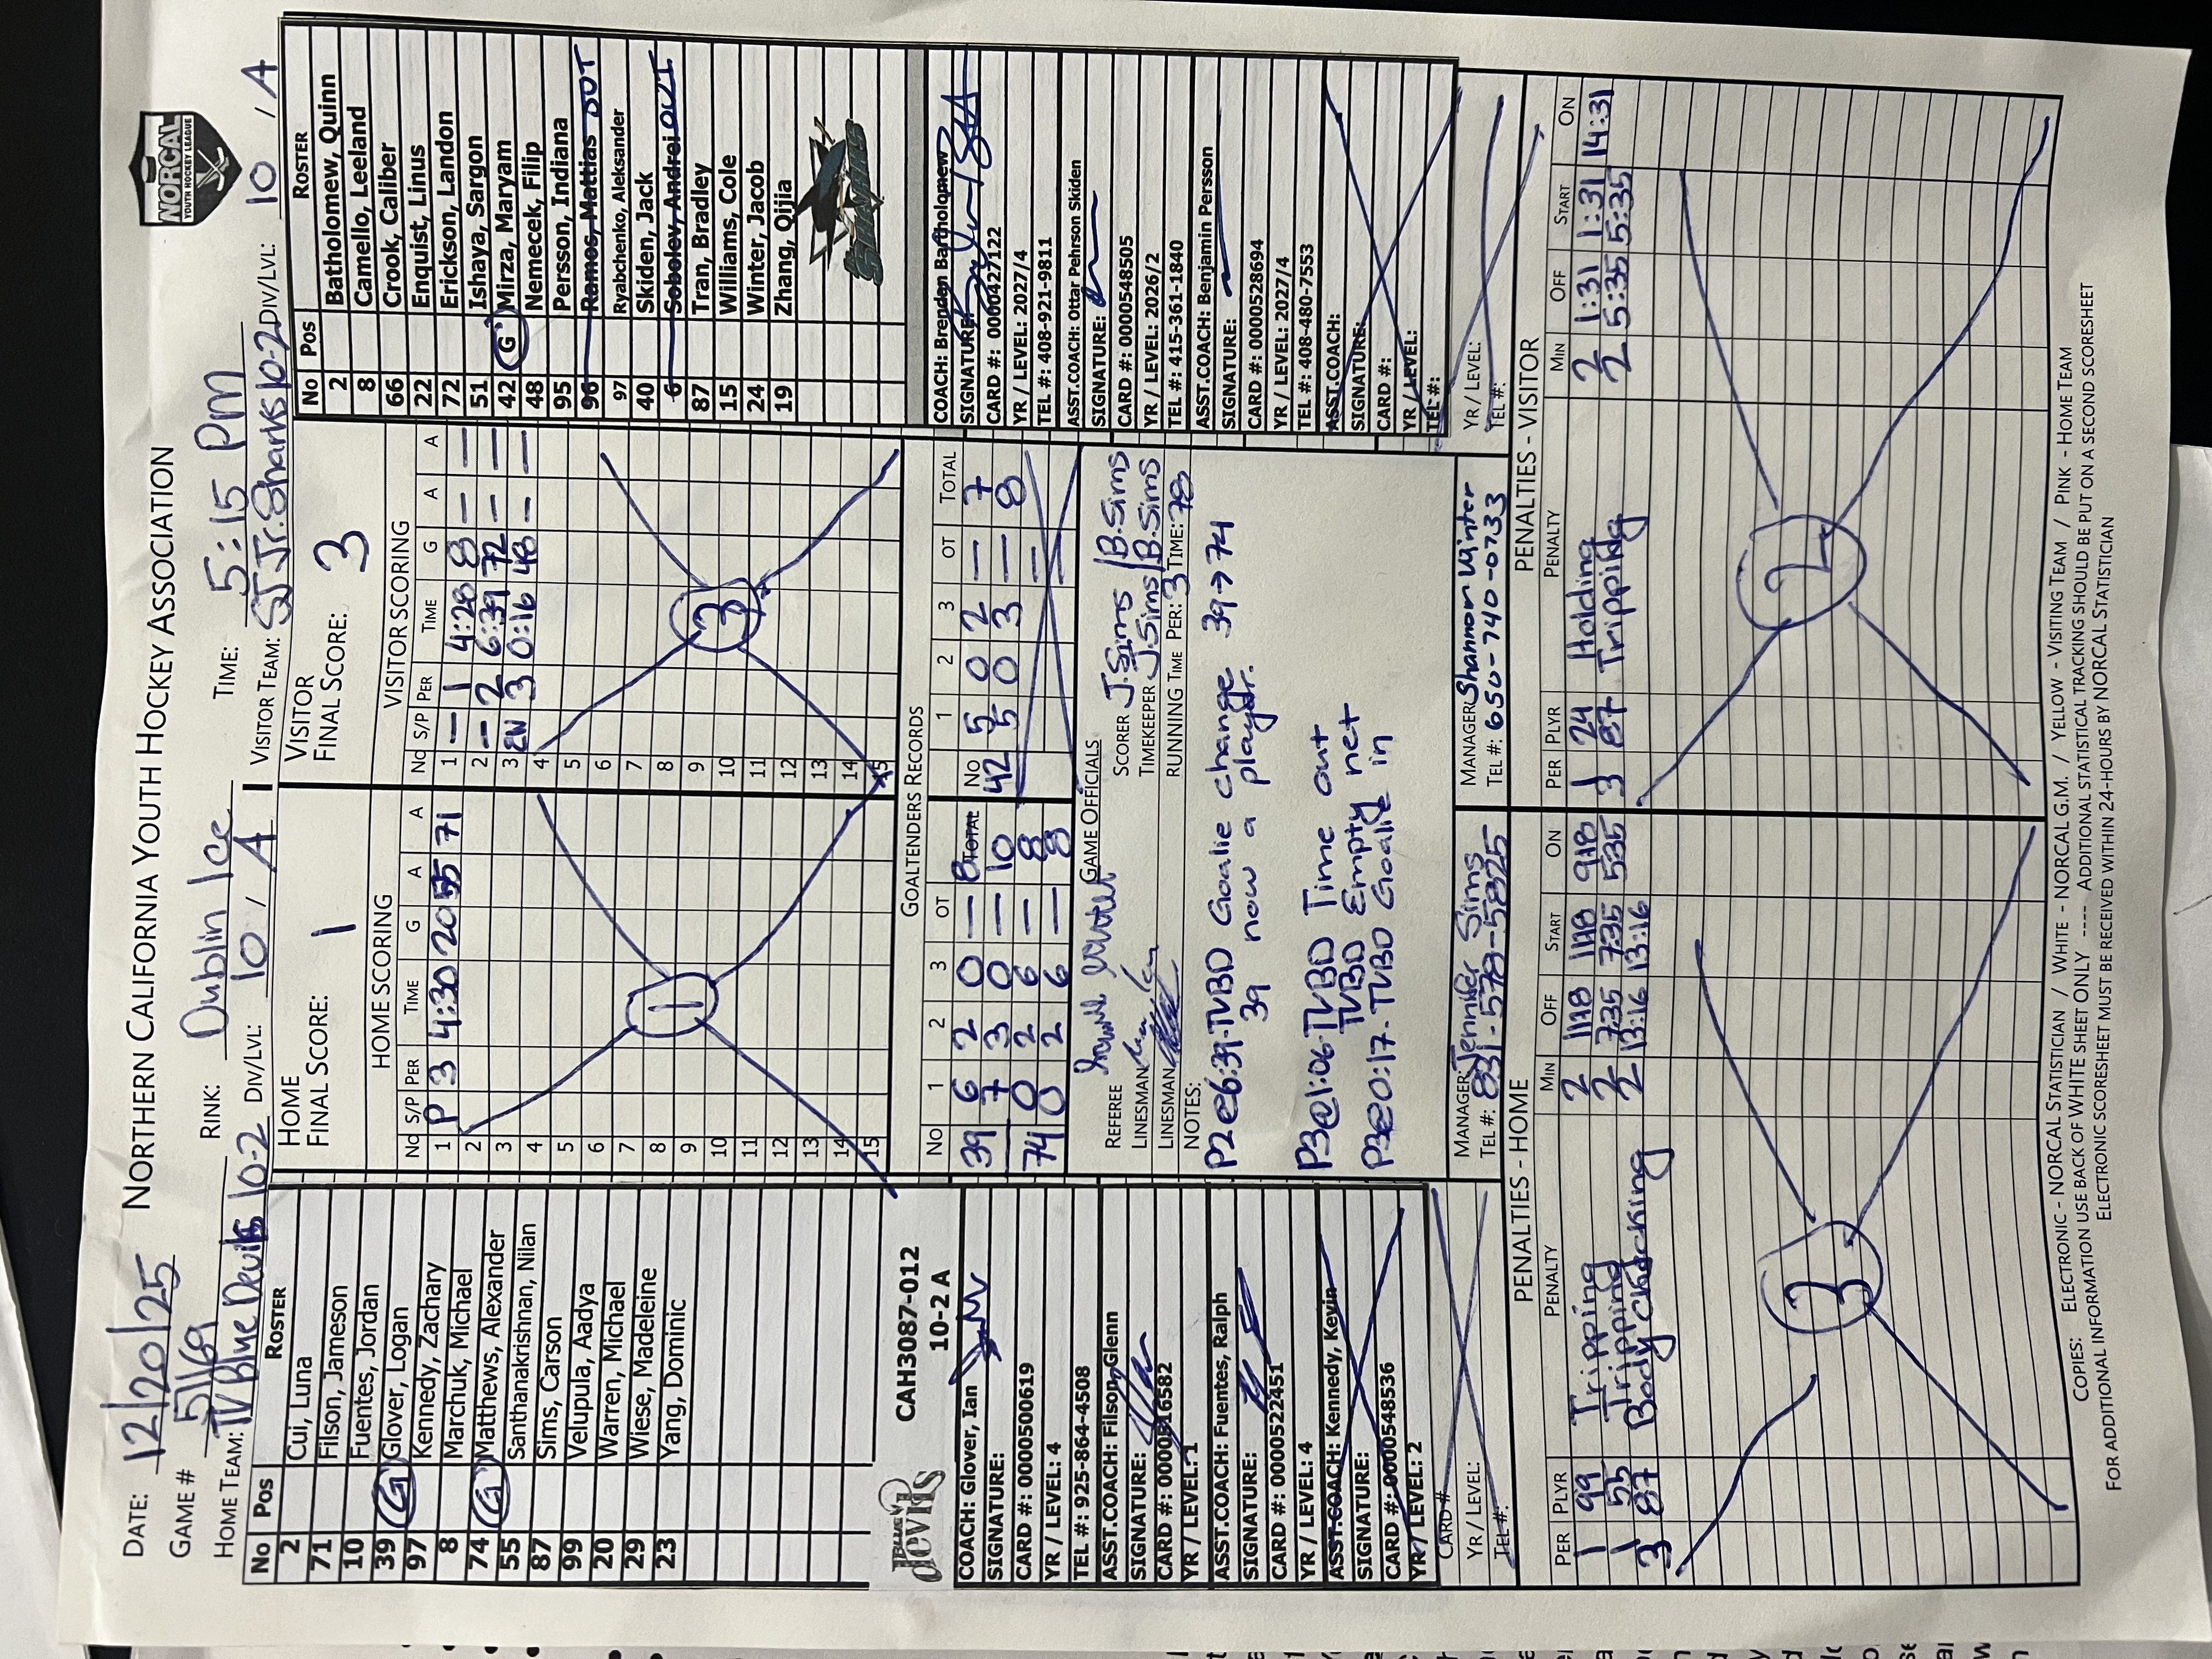 NORTHERN CALIFORNIA YOUTH HOCKEY ASSOCIATION
NORCAL
YOUTH HOCKEY LEAGUE
DATE: 12/20/25
RINK: Dublin Ice
TIME: 5:15 PM
GAME # 5169
HOME TEAM: TV Blue Devils 10-2 DIV/LVL: 10 / A
VISITOR TEAM: SJ Jr. Sharks 10-2 DIV/LVL: 10 / A
No Pos ROSTER
2 Cui, Luna
71 Filson, Jameson
10 Fuentes, Jordan
39 G Glover, Logan
97 Kennedy, Zachary
8 Marchuk, Michael
74 G Matthews, Alexander
55 Santhanakrishnan, Nilan
87 Sims, Carson
99 Velupula, Aadya
20 Warren, Michael
29 Wiese, Madeleine
23 Yang, Dominic
BLUE devils
CAH3087-012
10-2 A
COACH: Glover, Ian
SIGNATURE:
CARD #: 00005500619
YR / LEVEL: 4
TEL #: 925-864-4508
ASST.COACH: Filson, Glenn
SIGNATURE:
CARD #: 00005516582
YR / LEVEL: 1
ASST.COACH: Fuentes, Ralph
SIGNATURE:
CARD #: 00005522451
YR / LEVEL: 4
ASST.COACH: Kennedy, Kevin
SIGNATURE:
CARD #: 00005548536
YR / LEVEL: 2
CARD #
YR / LEVEL:
TEL #:
HOME
FINAL SCORE: 1
HOME SCORING
No S/P PER TIME G A A
1 P 3 4:30 20 55 71
2
3
4
5
6
7
8
9
10
11
12
13
14
15
1
VISITOR
FINAL SCORE: 3
VISITOR SCORING
No S/P PER TIME G A A
1 — 1 4:28 8 — —
2 — 2 6:39 72 — —
3 EN 3 0:16 48 — —
4
5
6
7
8
9
10
11
12
13
14
15
3
GOALTENDERS RECORDS
No 1 2 3 OT TOTAL
39 6 2 0 — 8
7 3 0 — 10
74 0 2 6 — 8
0 2 6 — 8
No 1 2 3 OT TOTAL
42 5 0 2 — 7
5 0 3 — 8
GAME OFFICIALS
REFEREE
LINESMAN
LINESMAN
SCORER J. Sims / B. Sims
TIMEKEEPER J. Sims / B. Sims
RUNNING TIME PER: 3 TIME: 78
NOTES:
P2@6:39-TVBD Goalie change 39→74
39 now a player.
P3@1:06-TVBD Time out
TVBD Empty net
P3@0:17-TVBD Goalie in
MANAGER: Jennifer Sims
TEL #: 831-578-5825
MANAGER: Shannon Winter
TEL #: 650-740-0733
No Pos ROSTER
2 Batholomew, Quinn
8 Camello, Leeland
66 Crook, Calliber
22 Enquist, Linus
72 Erickson, Landon
51 Ishaya, Sargon
42 G Mirza, Maryam
48 Nemecek, Filip
95 Persson, Indiana
96 Ramos, Mattias OUT
97 Ryabchenko, Aleksander
40 Skiden, Jack
6 Sobolev, Andrei OUT
87 Tran, Bradley
15 Williams, Cole
24 Winter, Jacob
19 Zhang, Qijia
COACH: Brenden Bartholomew
SIGNATURE:
CARD #: 0000427122
YR / LEVEL: 2027/4
TEL #: 408-921-9811
ASST.COACH: Ottar Pehrson Skiden
SIGNATURE:
CARD #: 0000548505
YR / LEVEL: 2026/2
TEL #: 415-361-1840
ASST.COACH: Benjamin Persson
SIGNATURE:
CARD #: 0000528694
YR / LEVEL: 2027/4
TEL #: 408-480-7553
ASST.COACH:
SIGNATURE:
CARD #:
YR / LEVEL:
TEL #:
YR / LEVEL:
TEL #:
PENALTIES - HOME
PER PLYR PENALTY MIN OFF START ON
1 99 Tripping 2 1118 1118 918
1 55 Tripping 2 735 735 535
3 87 Body Checking 2 13:16 13:16
3
PENALTIES - VISITOR
PER PLYR PENALTY MIN OFF START ON
1 24 Holding 2 1:31 1:31 14:31
3 87 Tripping 2 5:35 5:35
2
COPIES: ELECTRONIC - NORCAL STATISTICIAN / WHITE - NORCAL G.M. / YELLOW - VISITING TEAM / PINK - HOME TEAM
FOR ADDITIONAL INFORMATION USE BACK OF WHITE SHEET ONLY ---- ADDITIONAL STATISTICAL TRACKING SHOULD BE PUT ON A SECOND SCORESHEET
ELECTRONIC SCORESHEET MUST BE RECEIVED WITHIN 24-HOURS BY NORCAL STATISTICIAN